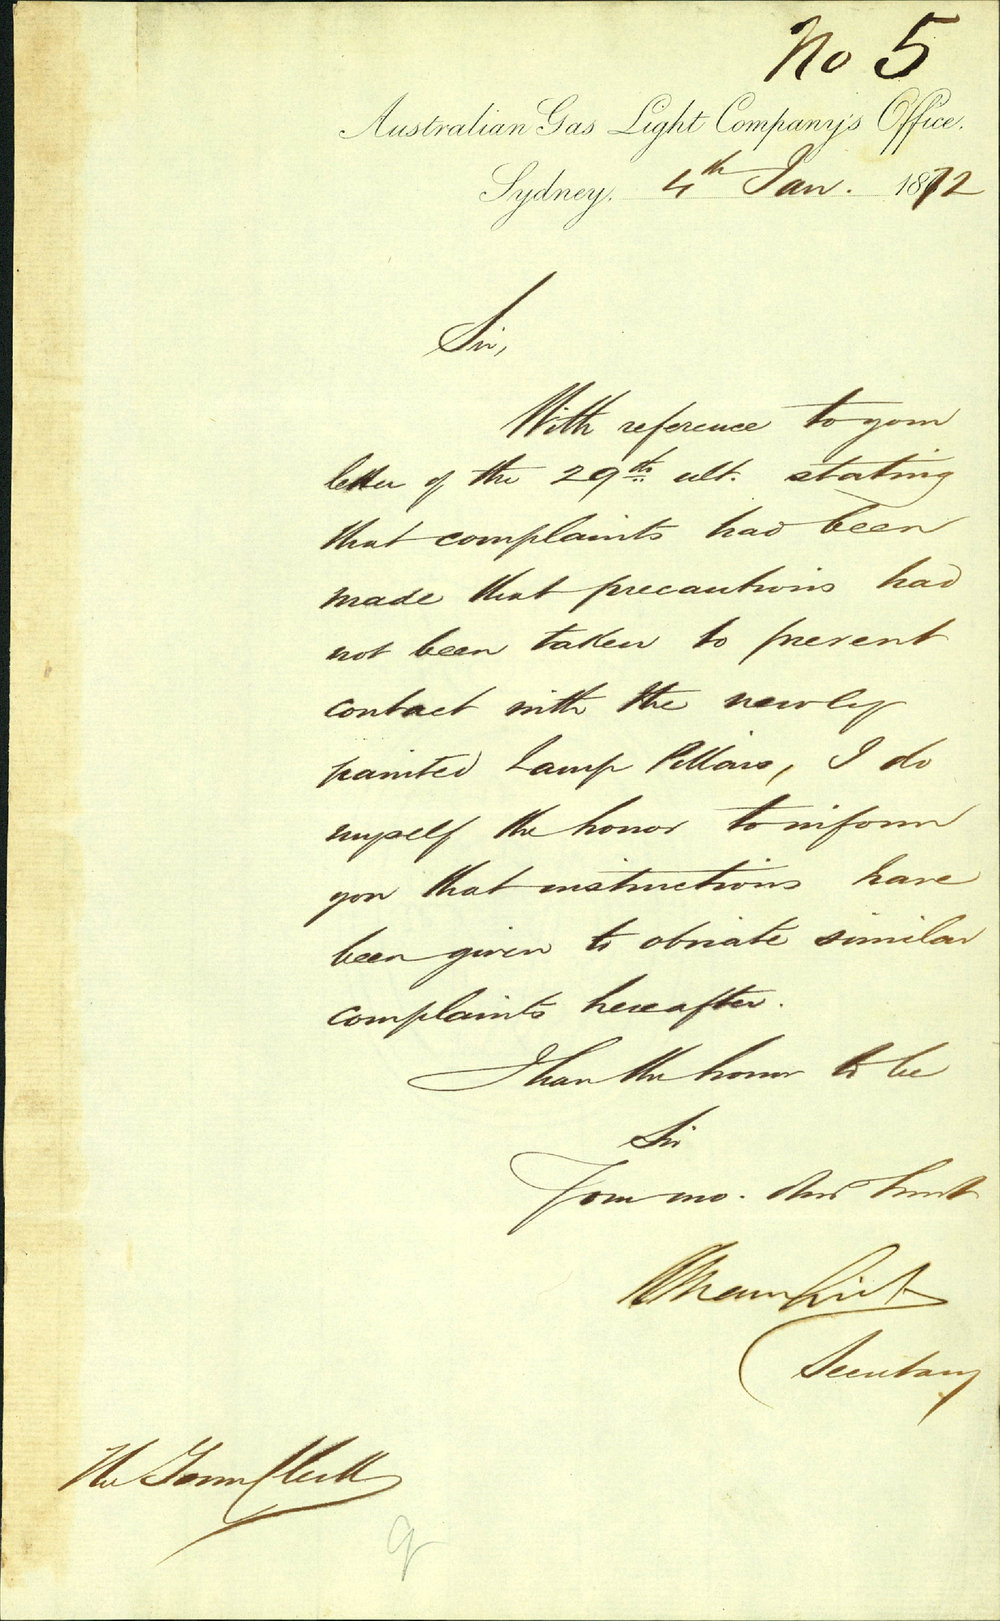 No 5
Australian Gas Light Company's Office.
Sydney. 4th Jan. 1872
Sir,
With reference to your
letter of the 29th ult. stating
that complaints had been
made that precautions had
not been taken to prevent
contact with the newly
painted Lamp Pillars, I do
myself the honor to inform
you that instructions have
been given to obviate similar
complaints hereafter.
I have the honor to be
Sir
Your mo. obed servt
Secretary
The Town Clerk
9